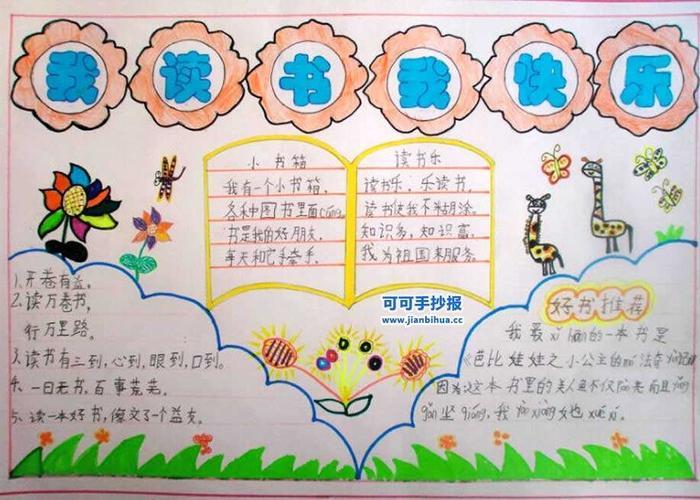 我读书我快乐
小书箱
我有一个小书箱，
各种图书里面cáng。
书是我的好朋友，
每天和它手牵手。
读书乐
读书乐，乐读书，
读书使我不糊涂。
知识多，知识富，
我为祖国来服务。
可可手抄报
www.jianbihua.cc
1.开卷有益。
2.读万卷书，
行万里路。
3.读书有三到，心到，眼到，口到。
4、一日无书，百事荒芜。
5、读一本好书，像交了个益友。
好书推荐
我最xǐ huān的一本书是
《芭比娃娃之小公主的
因为这本书里的美人鱼不仅 而且
坐 ，我 xiàng她 xué xí。